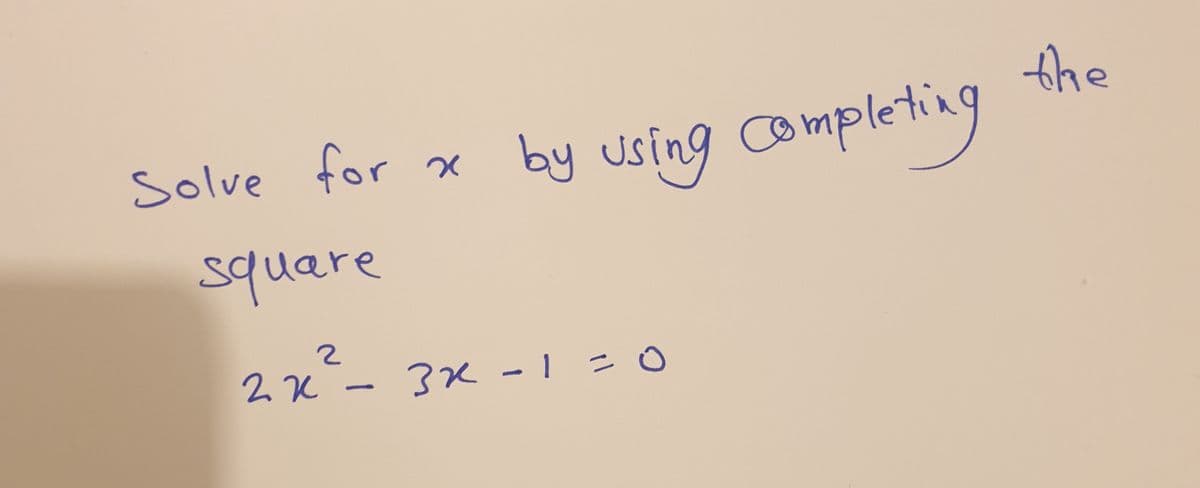 Solve for x by using completing the
square
2x² - 3x - 1 = 0